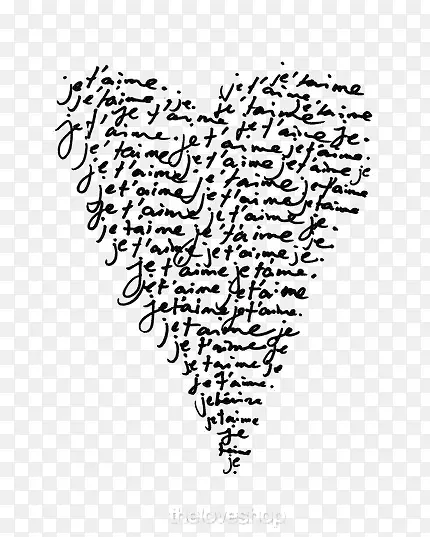 je t'aime. je t'aime
je t'aime je. je t'aime je t'aime
je t'aime je t'aime je.
je t'aime je t'aime je t'aime.
je t'aime je t'aime je t'aime je
je t'aime je t'aime je t'aime
je t'aime je t'aime je t'aime
je t'aime je t'aime je.
je t'aime je t'aime je
je t'aime je t'aime je.
je t'aime je t'aime.
je t'aime je t'aime
je t'aime je t'aime.
je t'aime je
je t'aime je
je t'aime je
je t'aime.
je t'aime
je
t'aime
je
theloveshop